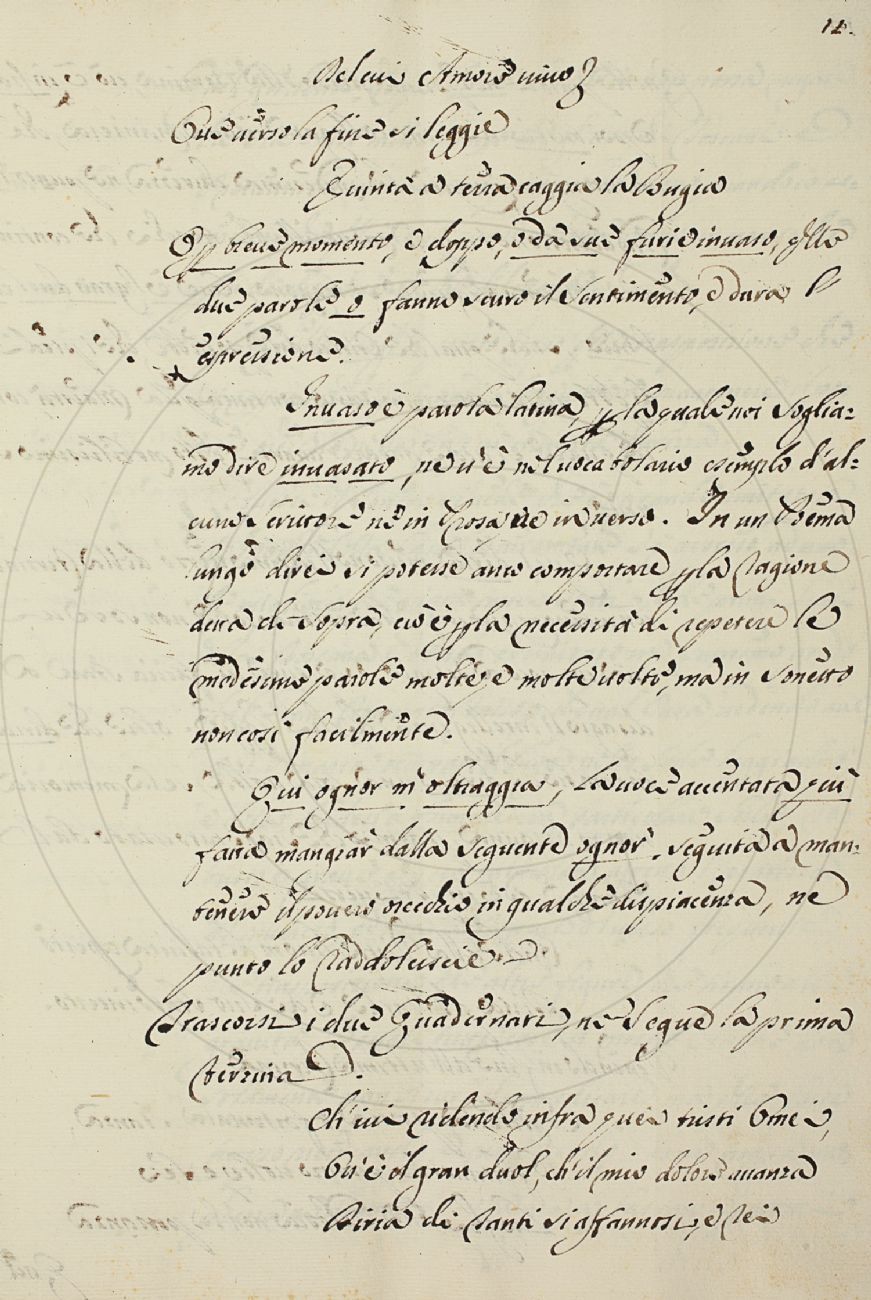 12.
Del cui Amore vivo
Ove verso la fine si leggie
Quinta a terra caggia la Bugia
O p breve momento, e doppo, o da sue furie invaso, q̃lle
due parole o fanno scuro il Sentimento, e dura l'
espressione.
Invaso è parola latina, p la quale noi Soglia=
mo dire invasato, ne v'è nel vocabolario esemplo d'al=
cuno Scrittore nè in Prosa ne in verso. In un Poema
lungo direi si potesse anco comportare p la ragione
detta di Sopra, cioè p la necessità di repetere le
medesime parole molte, e molte volte, ma in Sonetto
non così facilmente.
Qui ognor m'oltraggia, la voce accentata più
fatta mangiar dalla Seguente ognor, seguita a man=
tenere il povero orecchio in qualche dispiacenza, ne
punto lo raddolciscie.
Trascorsi i due Quadernari, ne Segue la prima
terzina.
Ch'ivi ridendo infra quei tristi Omei,
Ov'è il gran duol, ch'il mio dolore avanza
Diria di tanti si affannosi, e rei